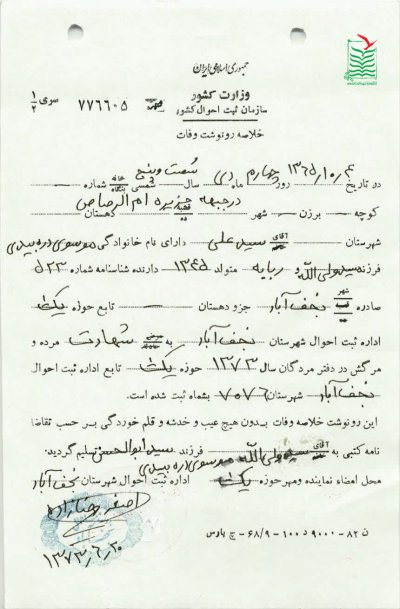 جمهوری اسلامی ایران
وزارت کشور
سازمان ثبت احوال کشور
سری ۱/۲ ۷۷۶۶۰۵
خلاصه رونوشت وفات
در تاریخ ۱۳۶۵/۱۰/۴ روز چهارم ماه دی سال شصت و پنج شمسی شماره
کوچه برزن شهر در جبهه جزیره ام الرصاص دهستان
شهرستان آقای سید علی دارای نام خانوادگی موسوی دره بیدی
فرزند سید ولی الله و ربابه متولد ۱۳۴۵ دارنده شناسنامه شماره ۵۲۳
صادره شهر نجف آباد جزو دهستان تابع حوزه یک
اداره ثبت احوال شهرستان نجف آباد به شهادت مرده و
مرگش در دفتر مردگان سال ۱۳۷۳ حوزه یک تابع اداره ثبت احوال
نجف آباد شهرستان ۷۰۷۶ بشماه ثبت شده است.
این رونوشت خلاصه وفات بدون هیچ عیب و خدشه و قلم خوردگی بر حسب تقاضا
نامه کتبی به آقای سید ولی الله موسوی دره بیدی فرزند سید ابوالحسن تسلیم گردید.
محل امضاء نماینده ومهر حوزه یک اداره ثبت احوال شهرستان نجف آباد
اصغر رضازاده
۱۳۷۳/۶/۲۰
ن ۸۲-۹۰۰۰ د ۱۰۰-۶۸/۹- چ پارس